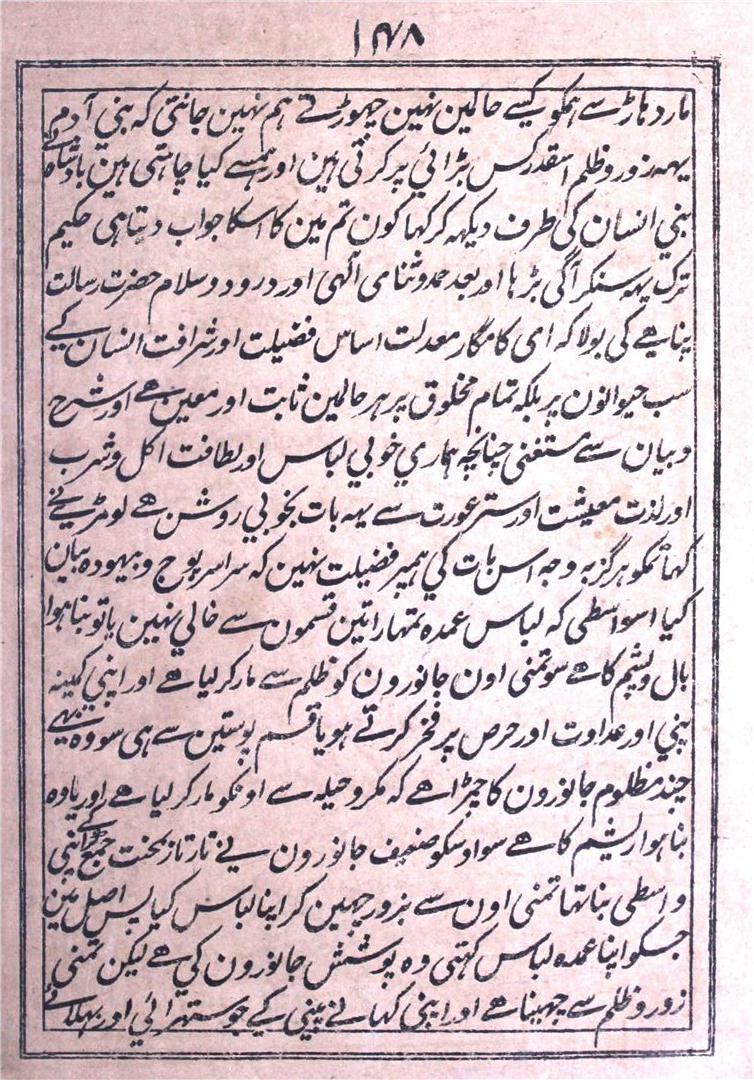 ۱۴۸
مار دہاڑ سے ہمکو کیسے حالمین نہین چہوڑتے ہم نہین جانتی کہ بني آدم
یہہ زور و ظلم اسقدر کس بڑائي پر کرتي ہین اور ہمسے کیا چاہتی ہین بادشاہ نے
بني انسان کی طرف دیکہہ کر کہا کون تم مین کا اسکا جواب دیتا ہی حکیم
ترک یہہ سنکر آگی بڑہا اور بعد حمد و ثنای الٰہی اور درود و سلام حضرت رسالت
پناہے کی بولا کہ ای کامگار معدلت اساس فضیلت اور شرافت انسان کے
سب حیوانون پر بلکہ تمام مخلوق پر ہر حالمین ثابت اور معین ہے اور شرح
و بیان سے مستغنی چنانچہ ہماري خوبي لباس اور لطافت اکل و شرب
اور لذت معیشت اور ستر عورت سے یہہ بات بخوبي روشن ہے لومڑینے
کہا تمکو ہرگز بہ وجہ اس بات کي ہمپر فضیلت نہین کہ سراسر پوچ و بیہودہ بیان
کیا اسواسطی کہ لباس عمدہ تمہارا تین قسمون سے خالي نہین یا تو بنا ہوا
بال و پشم کا ہے سو تمنی اون جانورون کو ظلم سے مار کر لیا ہے اور اپني کمینہ
پني اور عداوت اور حرص پر فخر کرتے ہو یا قسم پوستین سے ہی سو وہ بہي
چند مظلوم جانورون کا چمڑا ہے کہ مکر و حیلہ سے اونکو مار کر لیا ہے اور یا وہ
بنا ہوا ریشم کا ہے سو اوسکو ضعیف جانورون نے تار تار بمحنت جمع کرکے اپني
واسطی بنا تہا تمنی اون سے بزور چہین کر اپنا لباس کیا پس اصل مین
جسکو اپنا عمدہ لباس کہتی وہ پوشش جانورون کي ہے لیکن تمني
زور و ظلم سے چہینا ہے اور اپنی کہانے پینی کے جو ستہرائي اور بہلائے